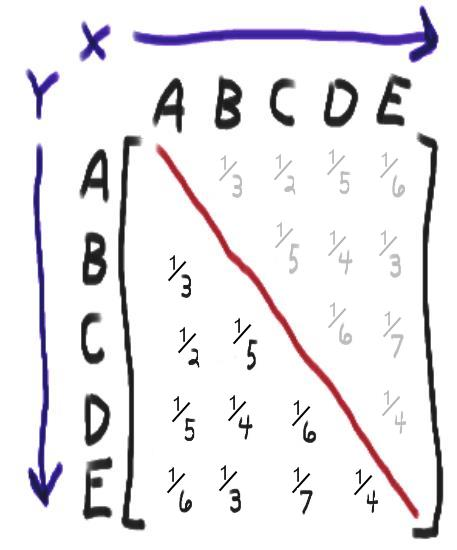 X
Y
A B C D E
A 1/3 1/2 1/5 1/6
B 1/3 1/5 1/4 1/3
C 1/2 1/5 1/6 1/7
D 1/5 1/4 1/6 1/4
E 1/6 1/3 1/7 1/4